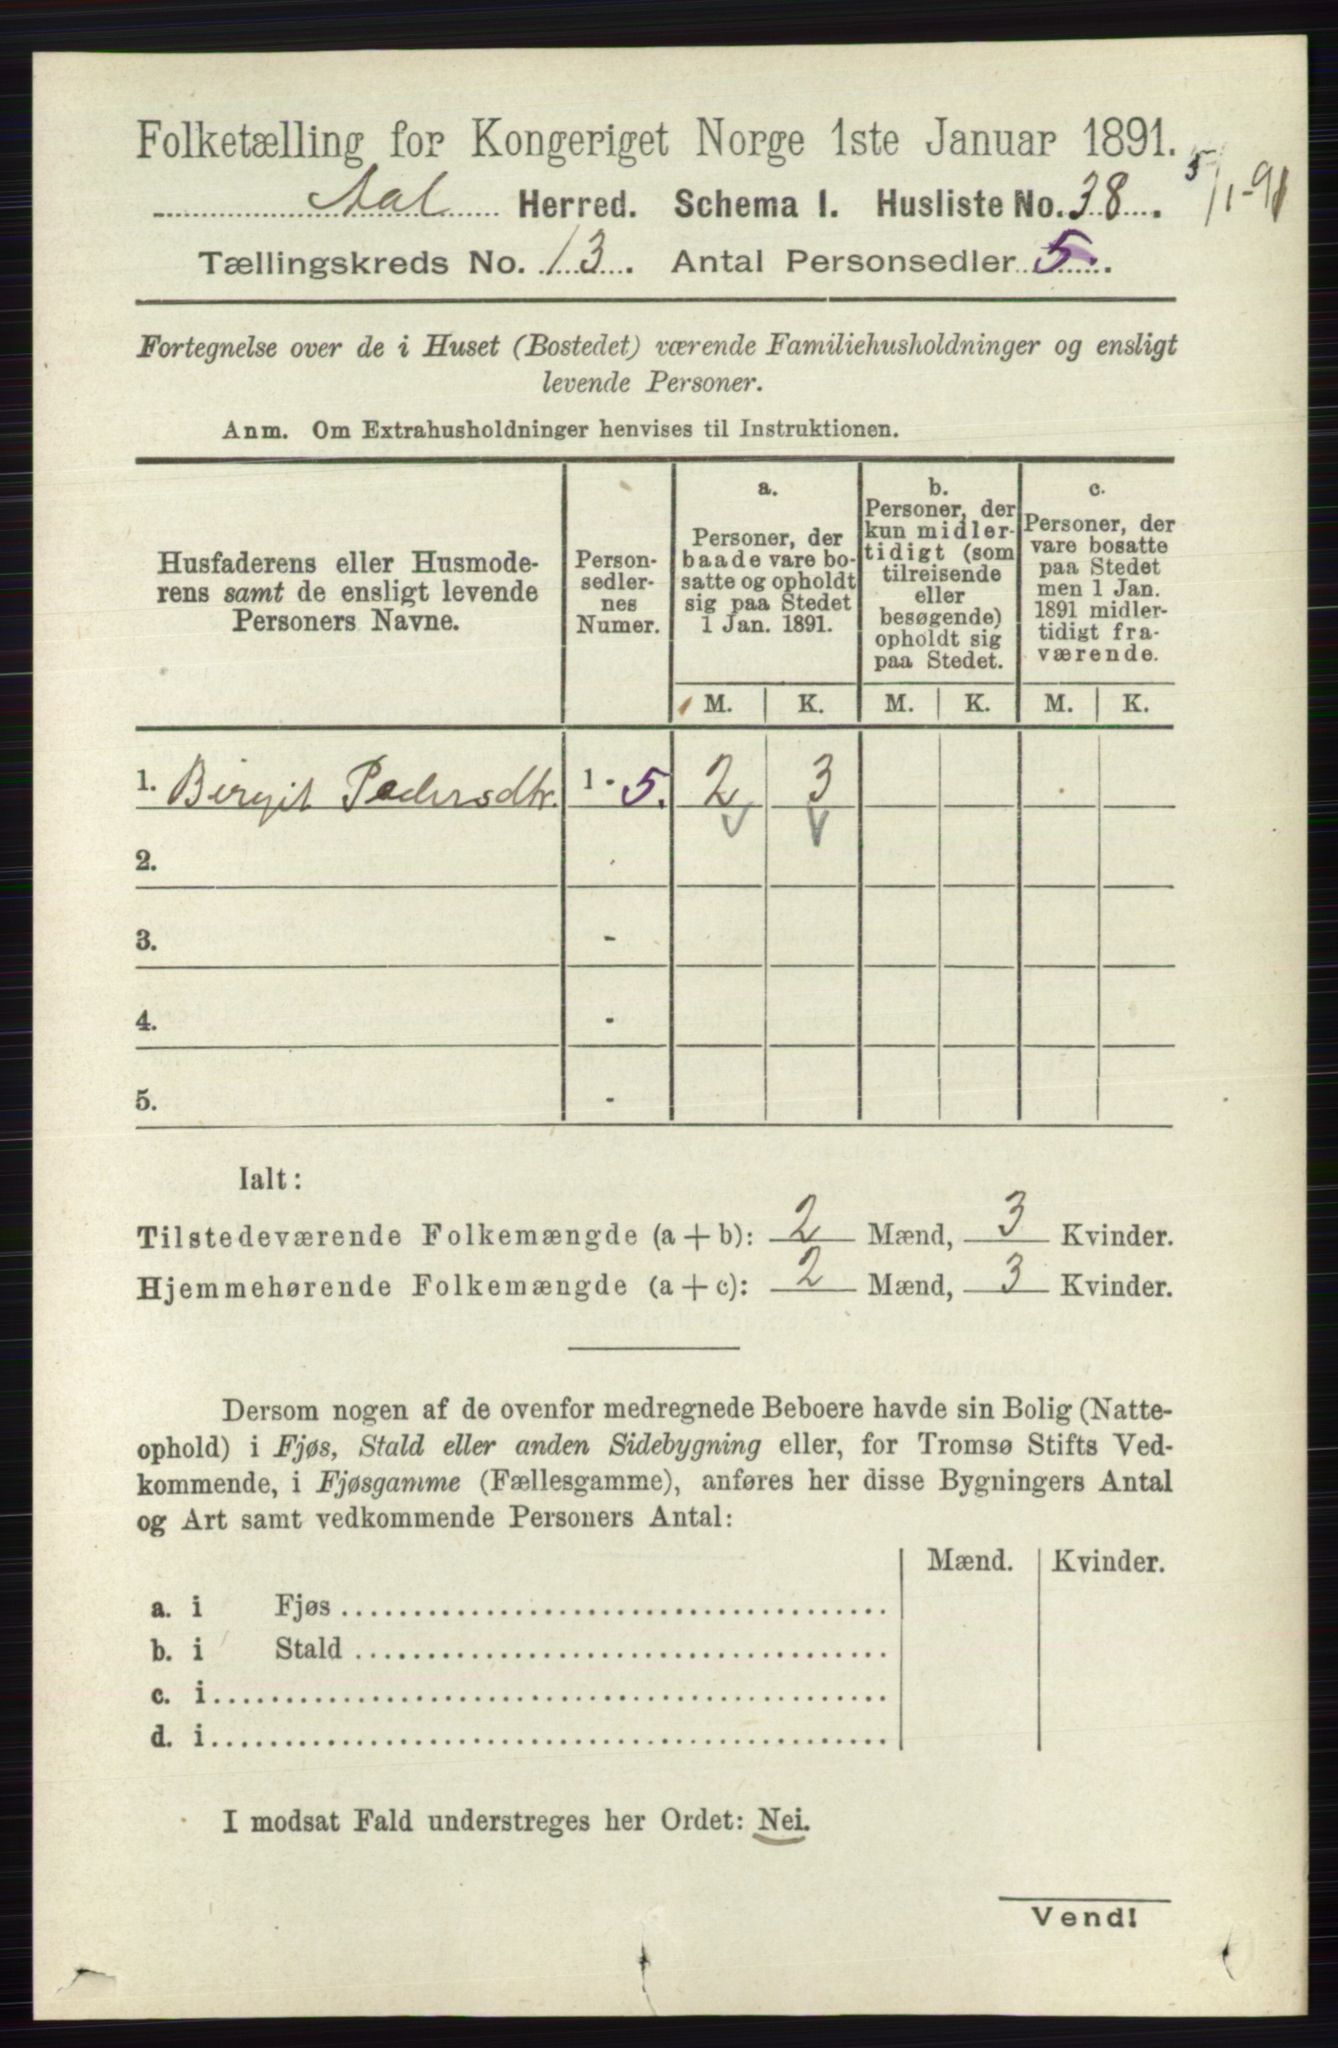 Folketælling for Kongeriget Norge 1ste Januar 1891.
5/1-91
Aal Herred. Schema 1. Husliste No. 38.
Tællingskreds No. 13. Antal Personsedler 5.
Fortegnelse over de i Huset (Bostedet) værende Familiehusholdninger og ensligt
levende Personer.
Anm. Om Extrahusholdninger henvises til Instruktionen.
Husfaderens eller Husmode-
rens samt de ensligt levende
Personers Navne.
Person-
sedler-
nes
Numer.
a.
Personer, der
baade vare bo-
satte og opholdt
sig paa Stedet
1 Jan. 1891.
b.
Personer, der
kun midler-
tidigt (som
tilreisende
eller
besøgende)
opholdt sig
paa Stedet.
c.
Personer, der
vare bosatte
paa Stedet
men 1 Jan.
1891 midler-
tidigt fra-
værende.
M. K. M. K. M. K.
1. Birgit Pedersdtr. 1 - 5. 2 3
2.
3. -
4. -
5. -
Ialt:
Tilstedeværende Folkemængde (a + b): 2 Mænd, 3 Kvinder.
Hjemmehørende Folkemængde (a + c): 2 Mænd, 3 Kvinder.
Dersom nogen af de ovenfor medregnede Beboere havde sin Bolig (Natte-
ophold) i Fjøs, Stald eller anden Sidebygning eller, for Tromsø Stifts Ved-
kommende, i Fjøsgamme (Fællesgamme), anføres her disse Bygningers Antal
og Art samt vedkommende Personers Antal:
Mænd. Kvinder.
a. i Fjøs
b. i Stald
c. i
d. i
I modsat Fald understreges her Ordet: Nei.
Vend!